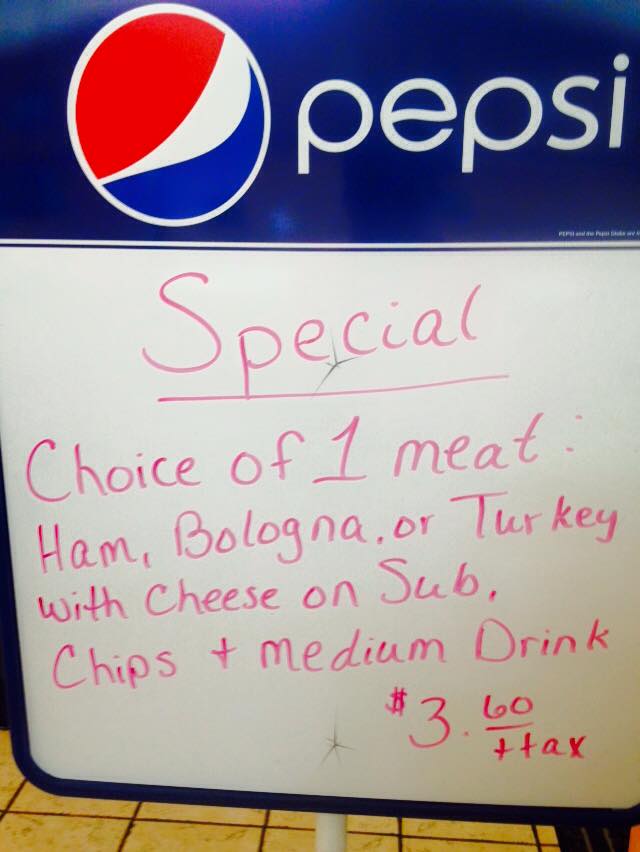 pepsi
PEPSI and the Pepsi Globe are
Special
Choice of 1 meat:
Ham, Bologna, or Turkey
with Cheese on Sub,
Chips + medium Drink
$3.60
+tax